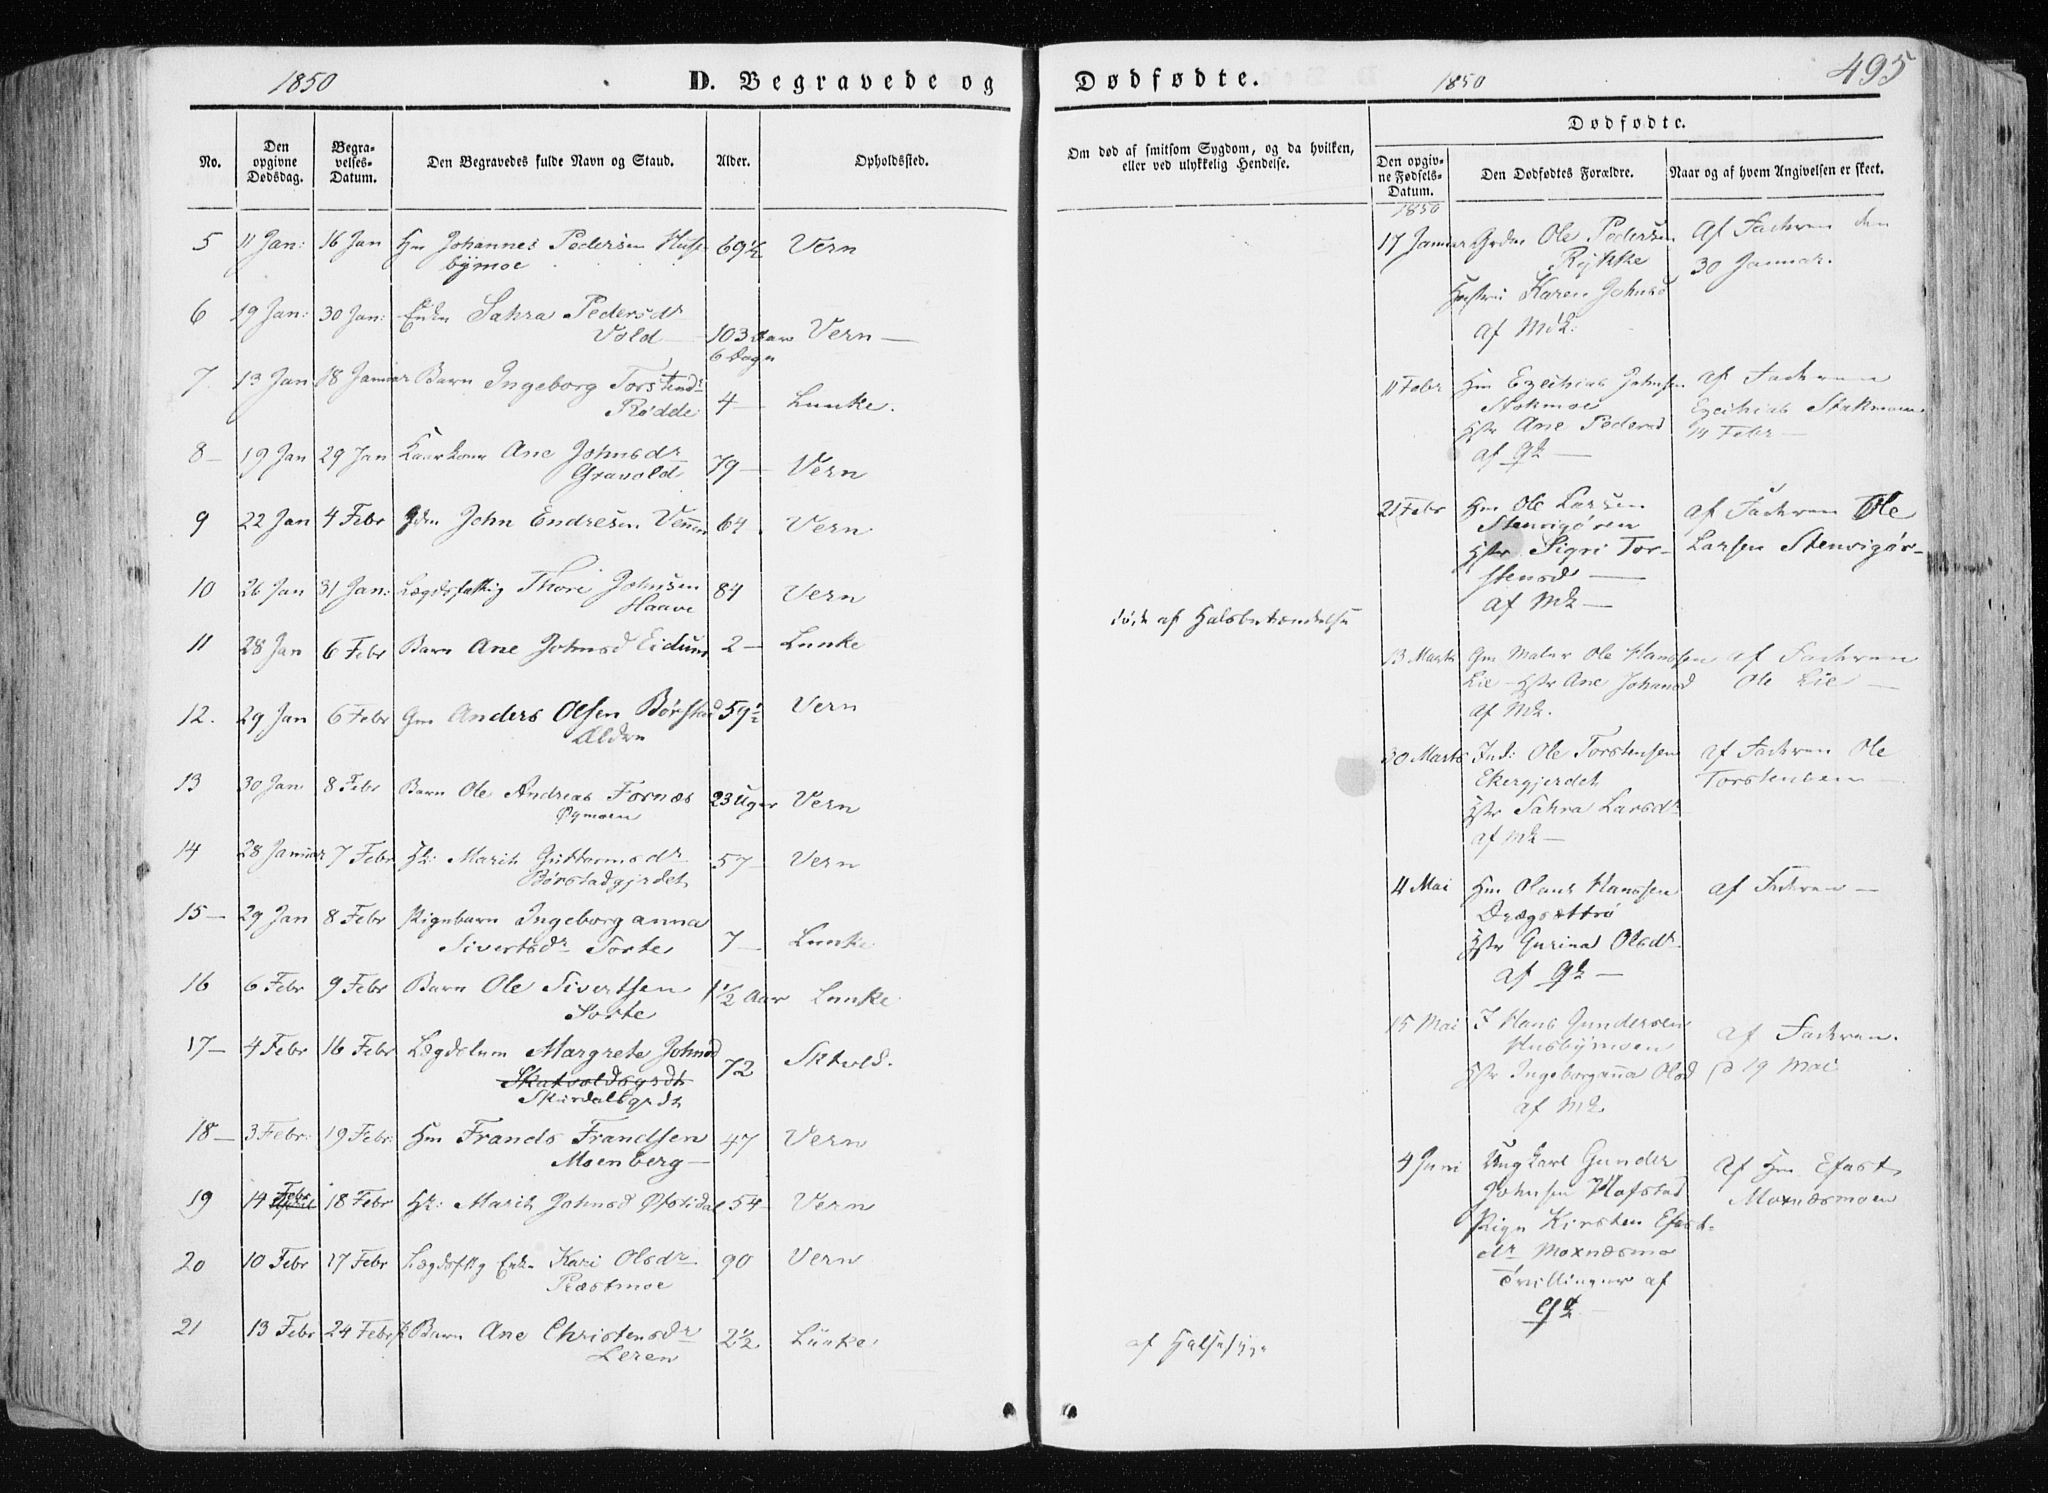 1850
D. Begravede og
Dødfødte.
1850
495
No.
Den opgivne Dødsdag.
Begravelses-Datum.
Den Begravedes fulde Navn og Stand.
Alder.
Opholdssted.
Om død af smitsom Sygdom, og da hvilken,
eller ved ulykkelig Hendelse.
Dødfødte.
Den opgivne Fødsels-Datum.
Den Dødfødtes Forældre.
Naar og af hvem Angivelsen er skeet.
5 11 Jan: 16 Jan Hm Johannes Pedersen Huse 69½ Vern
bÿmoe
6 19 Jan: 30 Jan: Enke Sahra Pedersdr
Vold 103 Aar Vern
6 Dage
7. 13 Jan 18 Januar Barn Ingeborg Torstendr
Rødde 4 Lunke.
8 19 Jan 29 Jan Kaarkone Ane Johnsdr 79 Vern
Gravold
9 22 Jan 4 Febr Gdm John Endresen 64 Vern
10 26 Jan 31 Jan: Lægdsfattig Thore Johnsen 84 Vern
Haave
11 28 Jan 6 Febr Barn Ane Johnsd Eidum 2 Lunke døde af Halsbetændelse
12. 29 Jan 6 Febr Gm Anders Olsen Børstad 59½ Vern
13 30 Jan 8 Febr Barn Ole Andreas Fornæs 23 Uger Vern
Øymoen
14 28 Januar 7 Febr Hk: Marit Guttormsdr 57 Vern
Børstadgjerdet
15 29 Jan 8 Febr Pigebarn Ingeborganna
Sivertsdr Forte 7 Lunke
16 6 Febr 9 Febr Barn Ole Sivertsen 1½ Aar Lunke
Forte
17 4 Febr 16 Febr Lægdslem Margrete Johnsd 72 Sktvld.
Skatvoldsgrdt
Skurdalsgrdt
18 3 Febr: 19 Febr: Hm Frands Frandsen 47 Vern
Moenberg
19 14 Febr 18 Febr Hk: Marit Johnsd Øfstidal 54 Vern
20 10 Febr 17 Febr Lægdsftg Enke Kari Olsdr 90 Vern
Præstmoe
21 13 Febr 24 Febr Barn Ane Christensdr 2½ Lunke. af Halssyge
Leren
1850
17 Januar Grdm Ole Pedersen Af Fadren den
Rykke 30 Januar.
Hustru Karen Johnsd
af Mk:
11 Febr Hm Ezechias Johnsen af Fadren
Stokmoe Ezechias Stokmoen
Hstr Ane Pedersd 14 Febr
af Qk
21 Febr Hm Ole Larsen af Fadren Ole
Stenvigøren Larsen Stenvigør-
Hstr Sigri Tor-
stensd
af Mk
13 Marts Gm Maler Ole Hanssen af Fadren
Lie Hstr Ane Johansd Ole Lie
af Mk.
30 Marts Ind: Ole Torstensen af Fadren Ole
Ekergjerdet Torstensen
Hstr Sahra Larsdr
af Mk
4 Mai Hm Olaus Hanssen af Fadren
Drægsettrø
Hstr Gurina Olsdr.
af Qk
15 Mai I Hans Gundersen af Fadren.
Husbÿmoen
Hstr Ingeborganna Olsd d 19 Mai
af Mk
4 Juni Ungkarl Gunder af Hm Efast
Johnsen Hofstad Moxnæsmoen
Pige Kirsten Efast-
dr Moxnæsmo
Tvillinger af
Qk